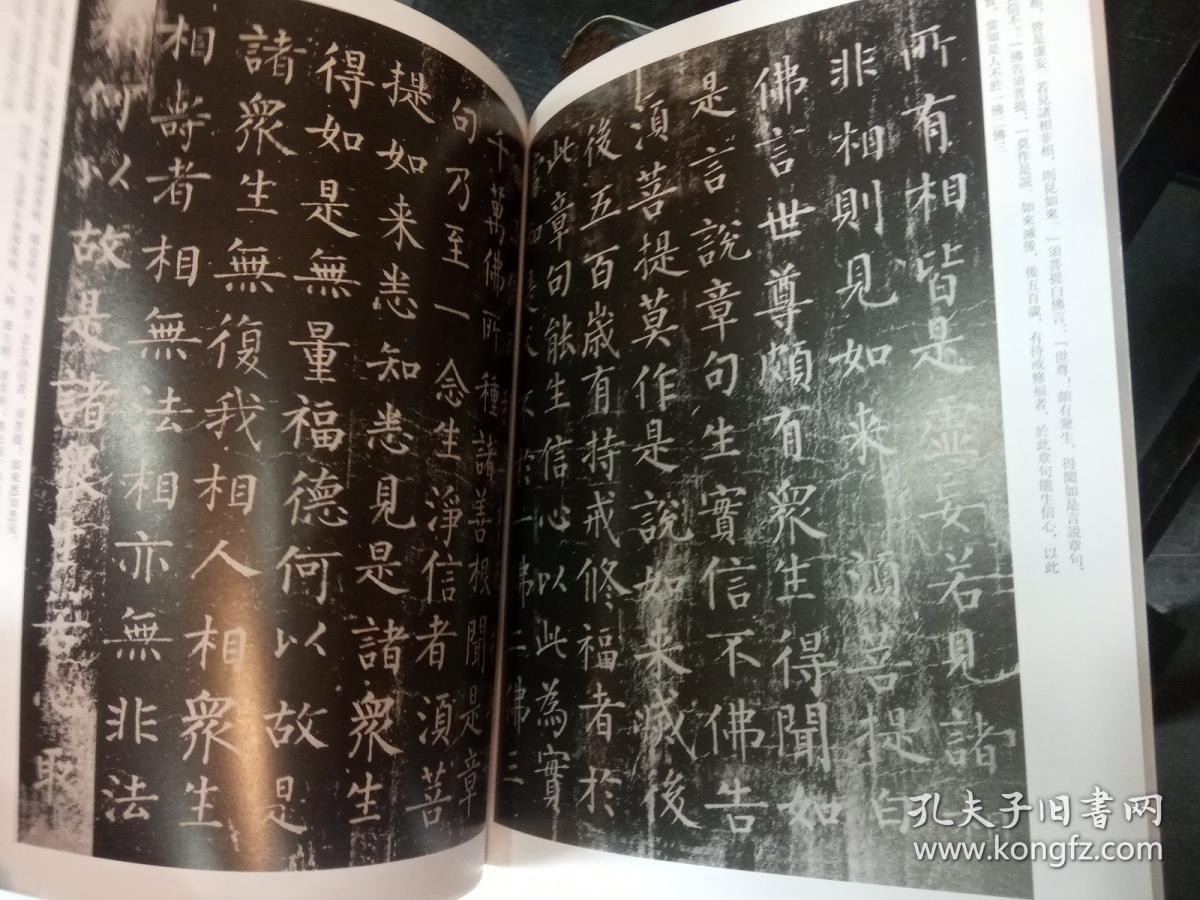 相，皆是虛妄。若見諸相非相，則見如來。」須菩提白佛言：「世尊！頗有衆生，得聞如是言說章句，
佛告須菩提：「莫作是說。如來滅後，後五百歲，有持戒修福者，於此章句能生信心，以此
當知是人不於一佛二佛三
所有相皆是虛妄若見諸
非相則見如来須菩提白
佛言世尊頗有眾生得聞如
是言說章句生實信不佛告
須菩提莫作是說如来滅後
後五百歲有持戒修福者於
此章句能生信心以此為實
當知是人不於一佛二佛三
千萬佛所種諸善根聞是章
句乃至一念生淨信者須菩
提如来悉知悉見是諸衆生
得如是無量福德何以故是
諸衆生無復我相人相衆生
相壽者相無法相亦無非法
相何以故是諸衆生若心取
孔夫子旧书网
www.kongfz.com